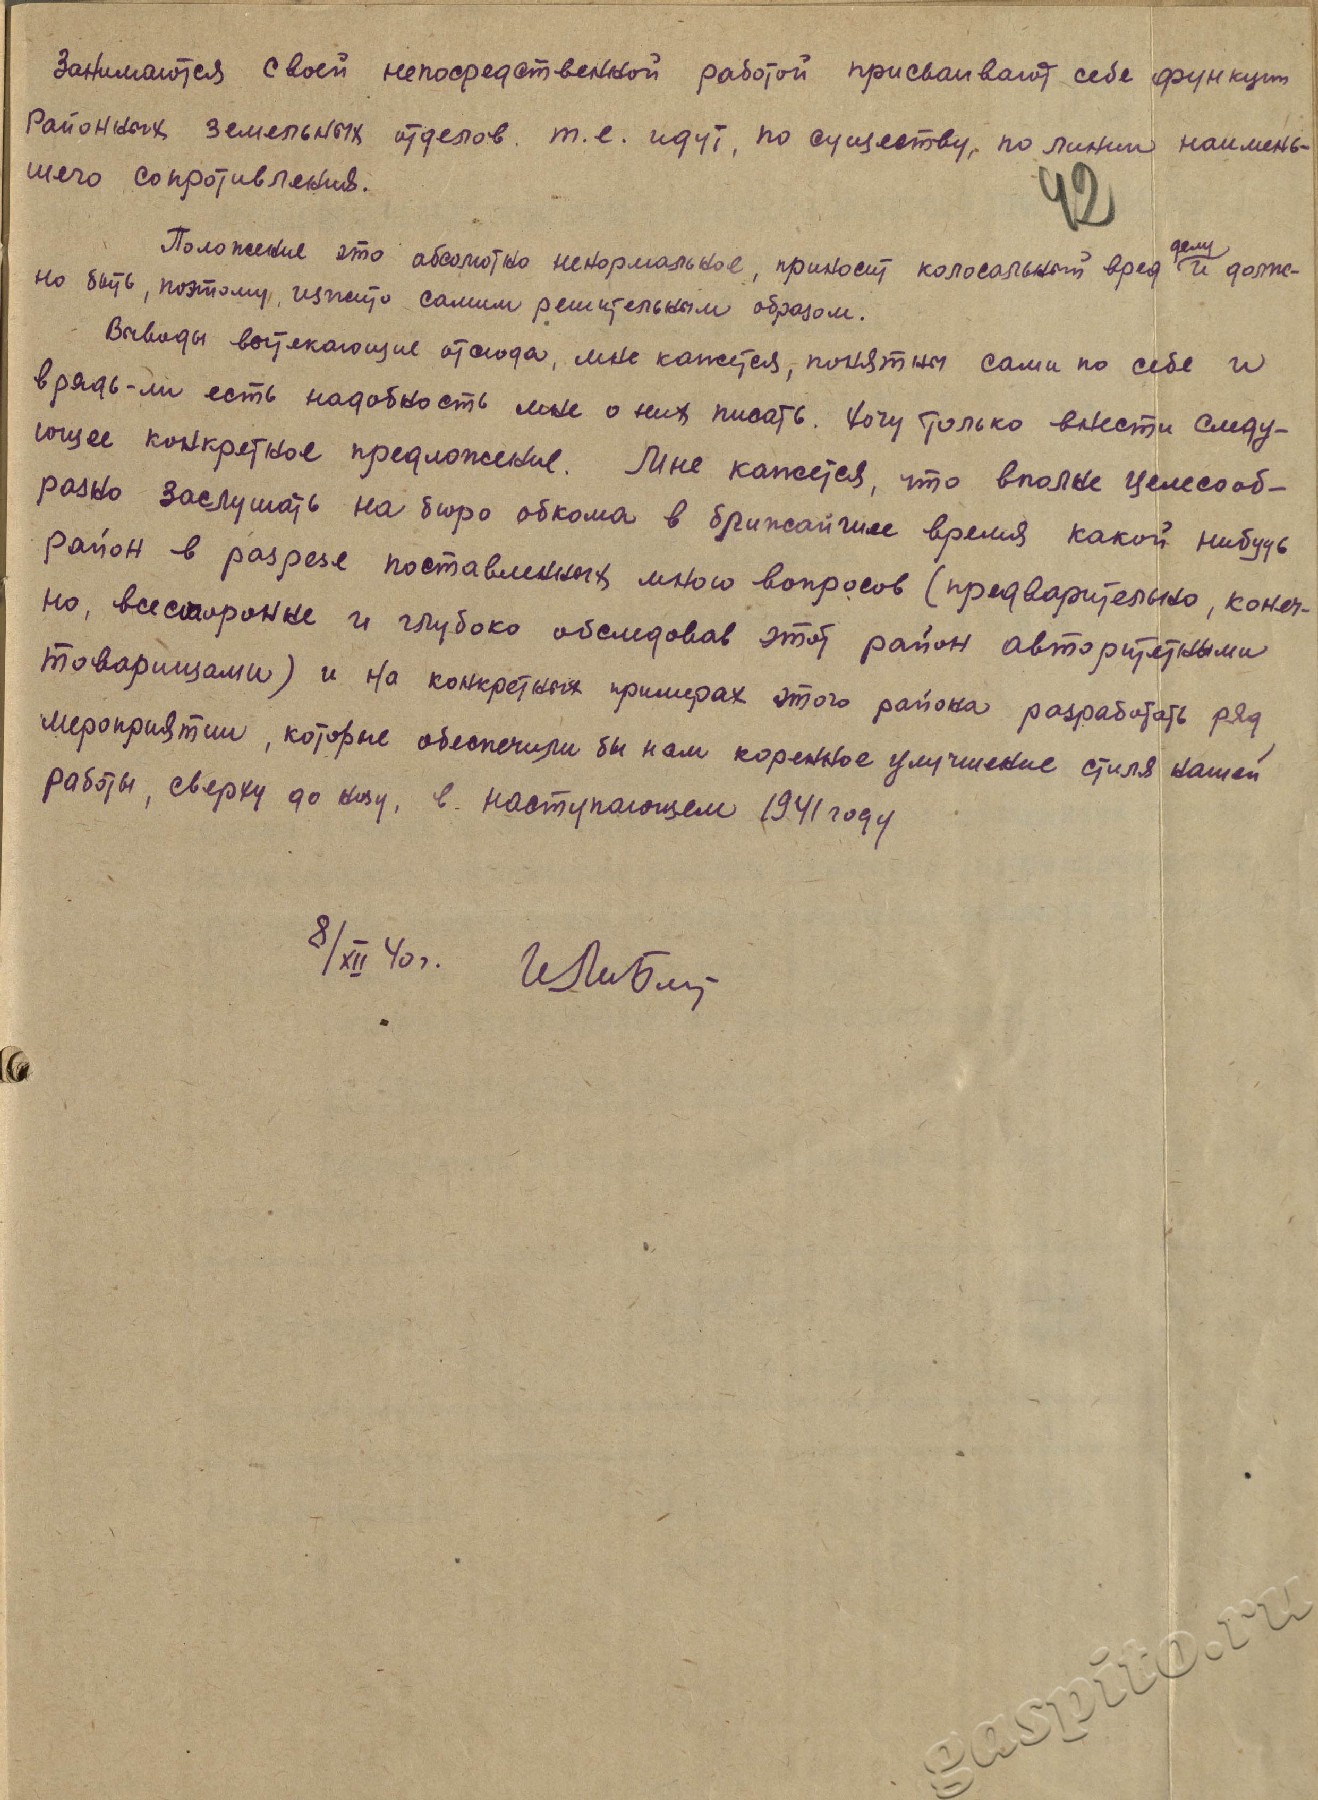 Занимаются своей непосредственной работой присваивают себе функции
Районных земельных отделов. т.е. идут, по существу, по линии наимень-
шего сопротивления.
42
Положение это абсолютно ненормальное, приносит колосальный вред делу и долж-
но быть, поэтому, изжито самим решительным образом.
Выводы вытекающие отсюда, мне кажется, понятны сами по себе и
врядь-ли есть надобность мне о них писать. Хочу только внести следу-
ющее конкретное предложение. Мне кажется, что вполне целесооб-
разно заслушать на бюро обкома в ближайшее время какой нибудь
район в разрезе поставленных мною вопросов (предварительно, конеч-
но, всесторонне и глубоко обследовав этот район авторитетными
товарищами) и на конкретных примерах этого района разработать ряд
мероприятии, которые обеспечили бы нам коренное улучшение стиля нашей
работы, сверху до низу, в наступающем 1941 году
8/XII 40 г.
gaspito.ru